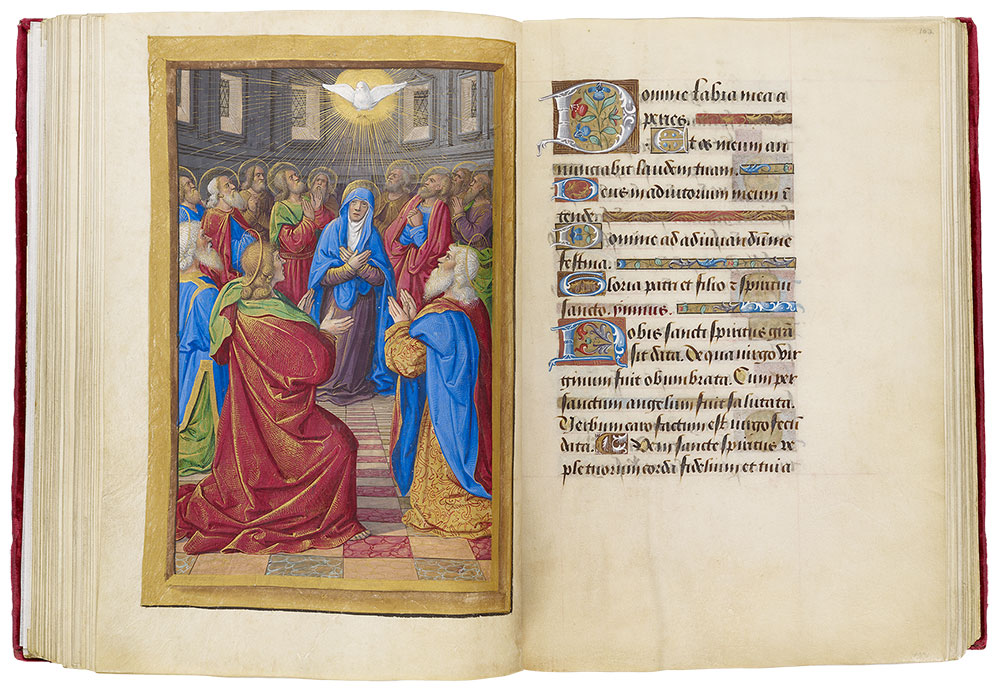 102
Domine labia mea a
peries. Et os meum an
nunciabit laudem tuam.
Deus in adiutorium meum ī
tende.
Domine ad adiuvandū me
festina.
Gloria patri et filio ⁊ spiritui
sancto. ymnus.
Nobis sancti spiritus grā
sit data. De qua virgo vir
ginum fuit obumbrata. Cum per
sanctum angelum fuit salutata.
Verbum caro factum est virgo fecū
data. Veni sancte spiritus re
ple tuorum corda fidelium et tui a